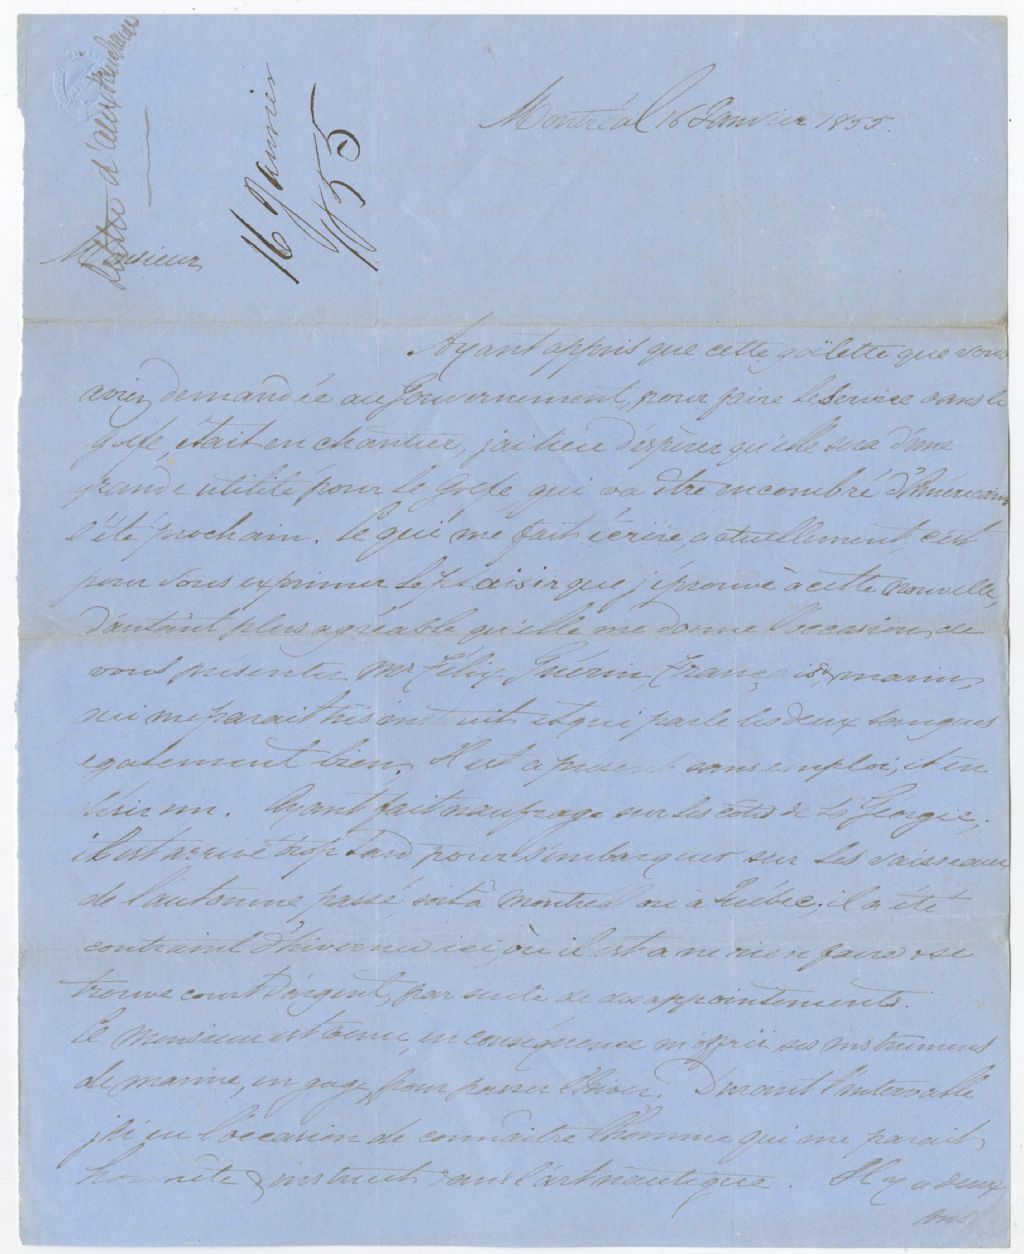 16 Janvier
1855
Montréal 16 Janvier 1855.
Monsieur
Ayant appris que cette goëlette que vous
aviez demandée au Gouvernement, pour faire le service dans le
Golfe, était en chantier, j'ai lieu d'espérer qu'elle sera d'une
grande utilité pour le Golfe, qui va être encombré d'Américains
l'été prochain. Ce qui me fait écrire, actuellement, c'est
pour vous exprimer le plaisir que j'éprouve à cette nouvelle,
d'autant plus agréable qu'elle me donne l'occasion de
vous présenter Mr Félix Guérin, Français, marin,
qui me parait très instruit et qui parle les deux langues
egalement bien. Il est a présent sans emploi, et en
désir un. Ayant fait naufrage sur les côtes de la Georgie,
il est arrivé trop tard pour s'embarquer sur les vaisseaux
de l'automne passé, soit à Montréal ou à Québec; il a été
contraint d'hiverner ici, où il est a ne rien faire & se
trouve court d'argent, par suite de desappointements.
Ce monsieur est venu, en conséquence m'offrir ses instruments
de marine, en gage, pour passer l'hiver. Durant l'intervalle
j'ai eu l'occasion de connaître l'homme qui me parait
honnête & instruit dans l'art nautique. Il y a deux
ans